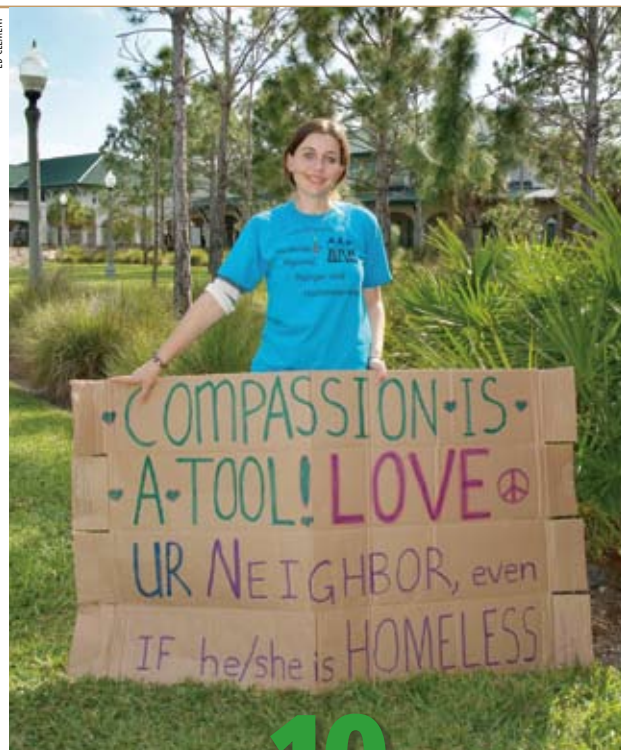 COMPASSION IS
A TOOL! LOVE
UR NEIGHBOR, even
IF he/she is HOMELESS
10